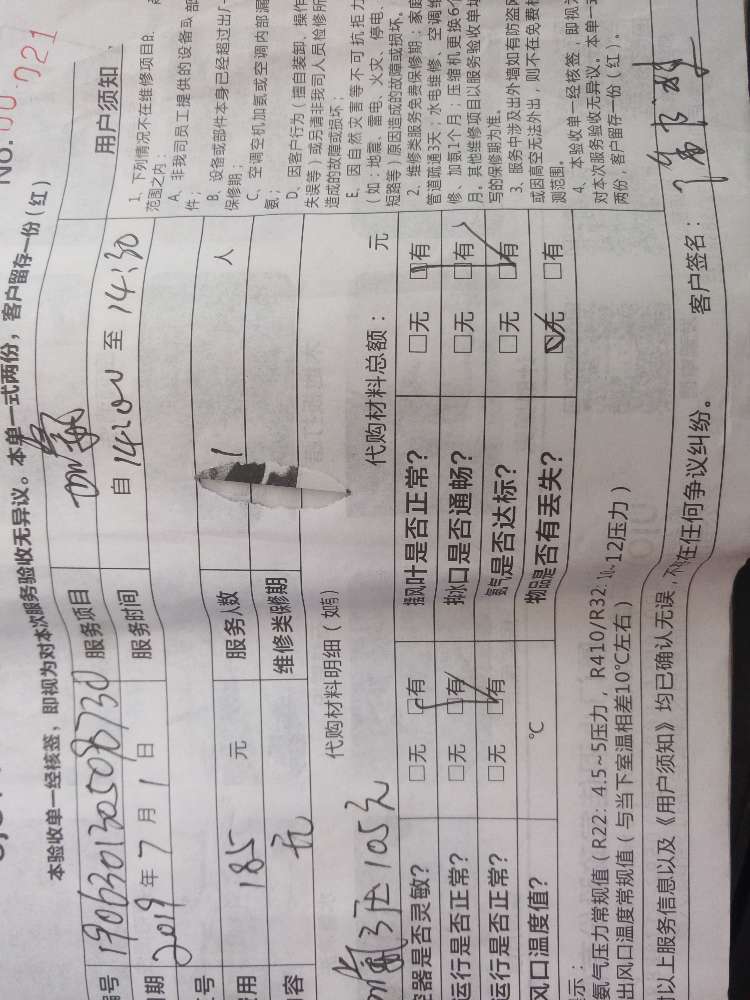 No.
021
本验收单一经核签，即视为对本次服务验收无异议。本单一式两份，客户留存一份（红）
编号 1906301305098730 服务项目
日期 2019 年 7 月 1 日 服务时间 自 14:00 至 14:30
号
费用 185 元 服务人数 1 人
内容 维修类保修期
代购材料明细（如有） 代购材料总额： 元
105元
器是否灵敏？ □无 □有 风叶是否正常？ □无 □有
运行是否正常？ □无 □有 水口是否通畅？ □无 □有
运行是否正常？ □无 □有 是否达标？ □无 □有
风口温度值？ ℃ 物品是否有丢失？ □无 □有
示：
氨气压力常规值（R22：4.5~5压力，R410/R32: 12压力）
出风口温度常规值（与当下室温相差10℃左右）
以上服务信息以及《用户须知》均已确认无误， 在任何争议纠纷。
客户签名：
用户须知
1、下列情况不在维修项目的
范围之内：
A、非我司员工提供的设备或部
件；
B、设备或部件本身已经超过出厂
保修期；
C、空调空机加氨或空调内部漏
氨；
D、因客户行为（擅自装卸、操作
失误等）或另请非我司人员检修所
造成的故障或损坏；
E、因自然灾害等不可抗拒力
（如：地震、雷电、火灾、停电、
短路等）原因造成的故障或损坏。
2、维修类服务免费保修期：家庭
管道疏通3天；水电维修、空调维
修、加氨1个月；压缩机更换6个
月。其他维修项目以服务验收单填
写的保修期为准。
3、服务中涉及出外墙如有防盗网
或因高空无法外出，则不在免费检
测范围。
4、本验收单一经核签，即视为
对本次服务验收无异议。本单一式
两份，客户留存一份（红）。